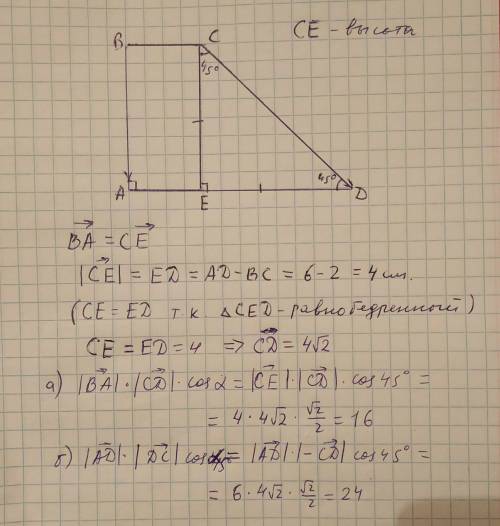 CE - высота
B C
45°
45°
A E D
BA⃗ = CE⃗
|CE⃗| = ED = AD - BC = 6 - 2 = 4 см.
(CE = ED т к △CED - равнобедренный)
CE = ED = 4 ⇒ CD⃗ = 4√2
а) |BA⃗|·|CD⃗|·cos α = |CE⃗|·|CD⃗|·cos 45° =
= 4 · 4√2 · √2/2 = 16
б) |AD⃗|·|DC⃗| cos = |AD⃗|·|-CD⃗| cos 45° =
= 6 · 4√2 · √2/2 = 24